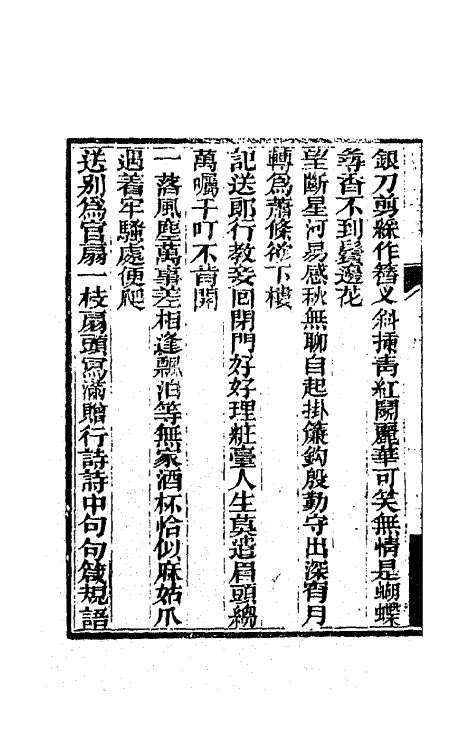 銀刀剪綵作簪叉斜插靑紅鬭麗華可笑無情是蝴蝶
尋香不到鬢邊花
望斷星河易感秋無聊自起掛簾鈎殷勤守出深宵月
轉爲蕭條欲下樓
記送郎行教妾回閉門好好理粧臺人生莫遣眉頭縐
萬囑千叮不肯開
一落風塵萬事差相逢飄泊等無家酒杯恰似麻姑爪
遇着牢騷處便爬
送别爲官扇一枝扇頭寫滿贈行詩詩中句句箴規語